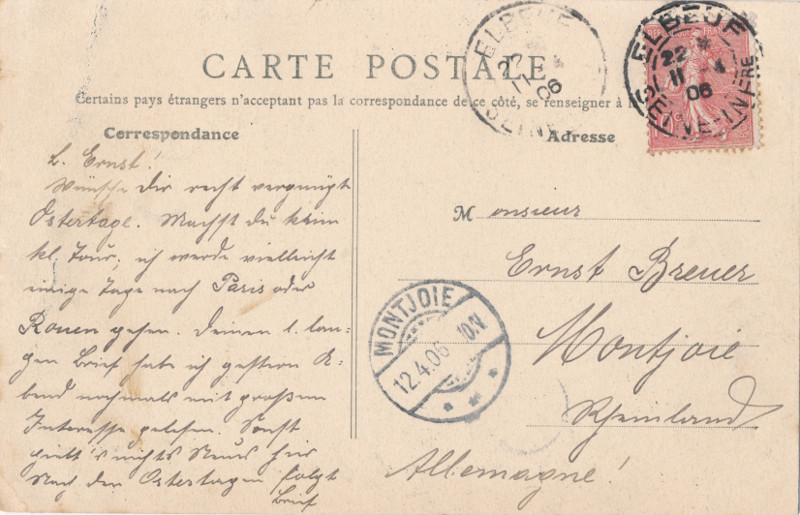 CARTE POSTALE
Certains pays étrangers n'acceptant pas la correspondance de ce côté, se renseigner à
Correspondance
L. Ernst!
Wünsche Dir recht vergnügte
Ostertage. Machst Du keine
kl. Tour, ich werde vielleicht
einige Tage nach Paris oder
Rouen gehen. Deinen l. lan-
gen Brief habe ich gestern A-
bend nochmals mit großem
Interesse gelesen. Sonst
giebt's nichts Neues hier
Nach den Ostertagen folgt
Brief
ELBEUF
11
06
SEINE
ELBEUF
22
11 4
06
SEINE-INFRE
Adresse
Monsieur
Ernst Breuer
Montjoie
Rheinland
Allemagne!
MONTJOIE
12.4.06
10-N